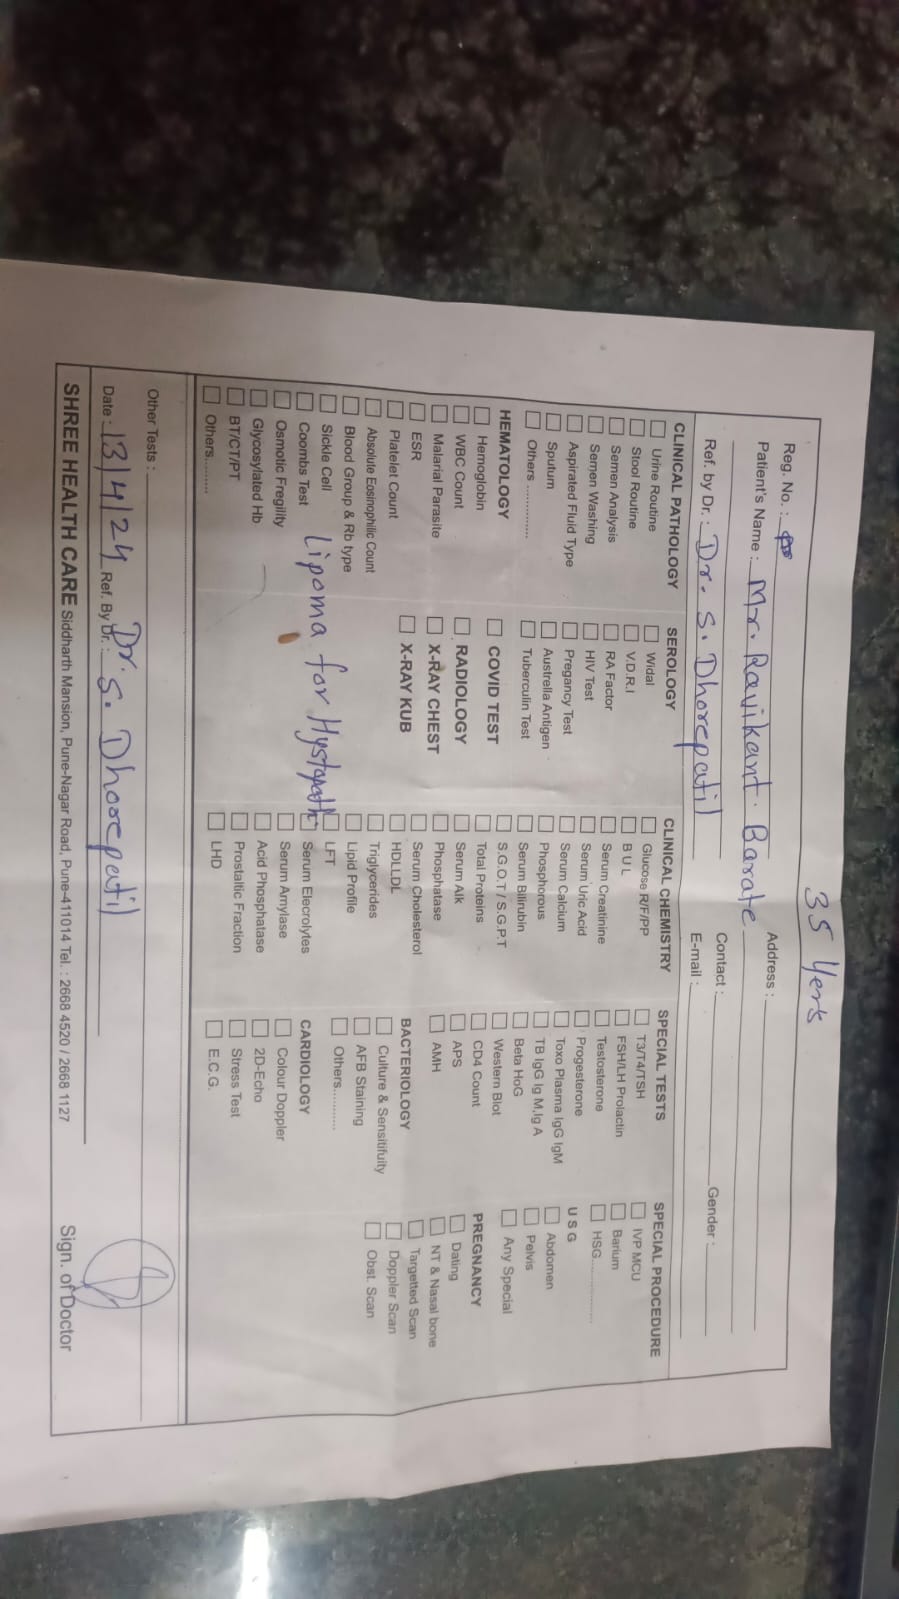 35 Yers
Reg. No. :
Patient's Name : Mr. Ravikant. Barate
Address :
Ref. by Dr. : Dr. S. Dhorepatil
Contact :
Gender :
E-mail :
CLINICAL PATHOLOGY
Urine Routine
Stool Routine
Semen Analysis
Semen Washing
Aspirated Fluid Type
Sputum
Others ..............
HEMATOLOGY
Hemoglobin
WBC Count
Malarial Parasite
ESR
Platelet Count
Absolute Eosinophilic Count
Blood Group & Rb type
Sickle Cell
Coombs Test
Osmotic Fregility
Glycosylated Hb
BT/CT/PT
Others.........
SEROLOGY
Widal
V.D.R.I
RA Factor
HIV Test
Pregancy Test
Austrella Antigen
Tuberculin Test
COVID TEST
RADIOLOGY
X-RAY CHEST
X-RAY KUB
Lipoma for Hystopath.
CLINICAL CHEMISTRY
Glucose R/F/PP
B U L
Serum Creatinine
Serum Uric Acid
Serum Calcium
Phosphorous
Serum Bilirubin
S.G.O.T / S.G.P.T
Total Proteins
Serum Alk
Phosphatase
Serum Cholesterol
HDLLDL
Triglycerides
Lipid Profile
LFT
Serum Elecrolytes
Serum Amylase
Acid Phosphatase
Prostaltic Fraction
LHD
SPECIAL TESTS
T3/T4/TSH
FSH/LH Prolactin
Testosterone
Progesterone
Toxo Plasma IgG IgM
TB IgG Ig M,Ig A
Beta HoG
Western Blot
CD4 Count
APS
AMH
BACTERIOLOGY
Culture & Sensitifuity
AFB Staining
Others...........
CARDIOLOGY
Colour Doppler
2D-Echo
Stress Test
E.C.G.
SPECIAL PROCEDURE
IVP MCU
Barium
HSG..................
U S G
Abdomen
Pelvis
Any Special
PREGNANCY
Dating
NT & Nasal bone
Targetted Scan
Doppler Scan
Obst. Scan
Other Tests :
Date : 13/4/24 Ref. By Dr. : Dr. S. Dhorepatil
SHREE HEALTH CARE Siddharth Mansion, Pune-Nagar Road, Pune-411014 Tel. : 2668 4520 / 2668 1127
Sign. of Doctor